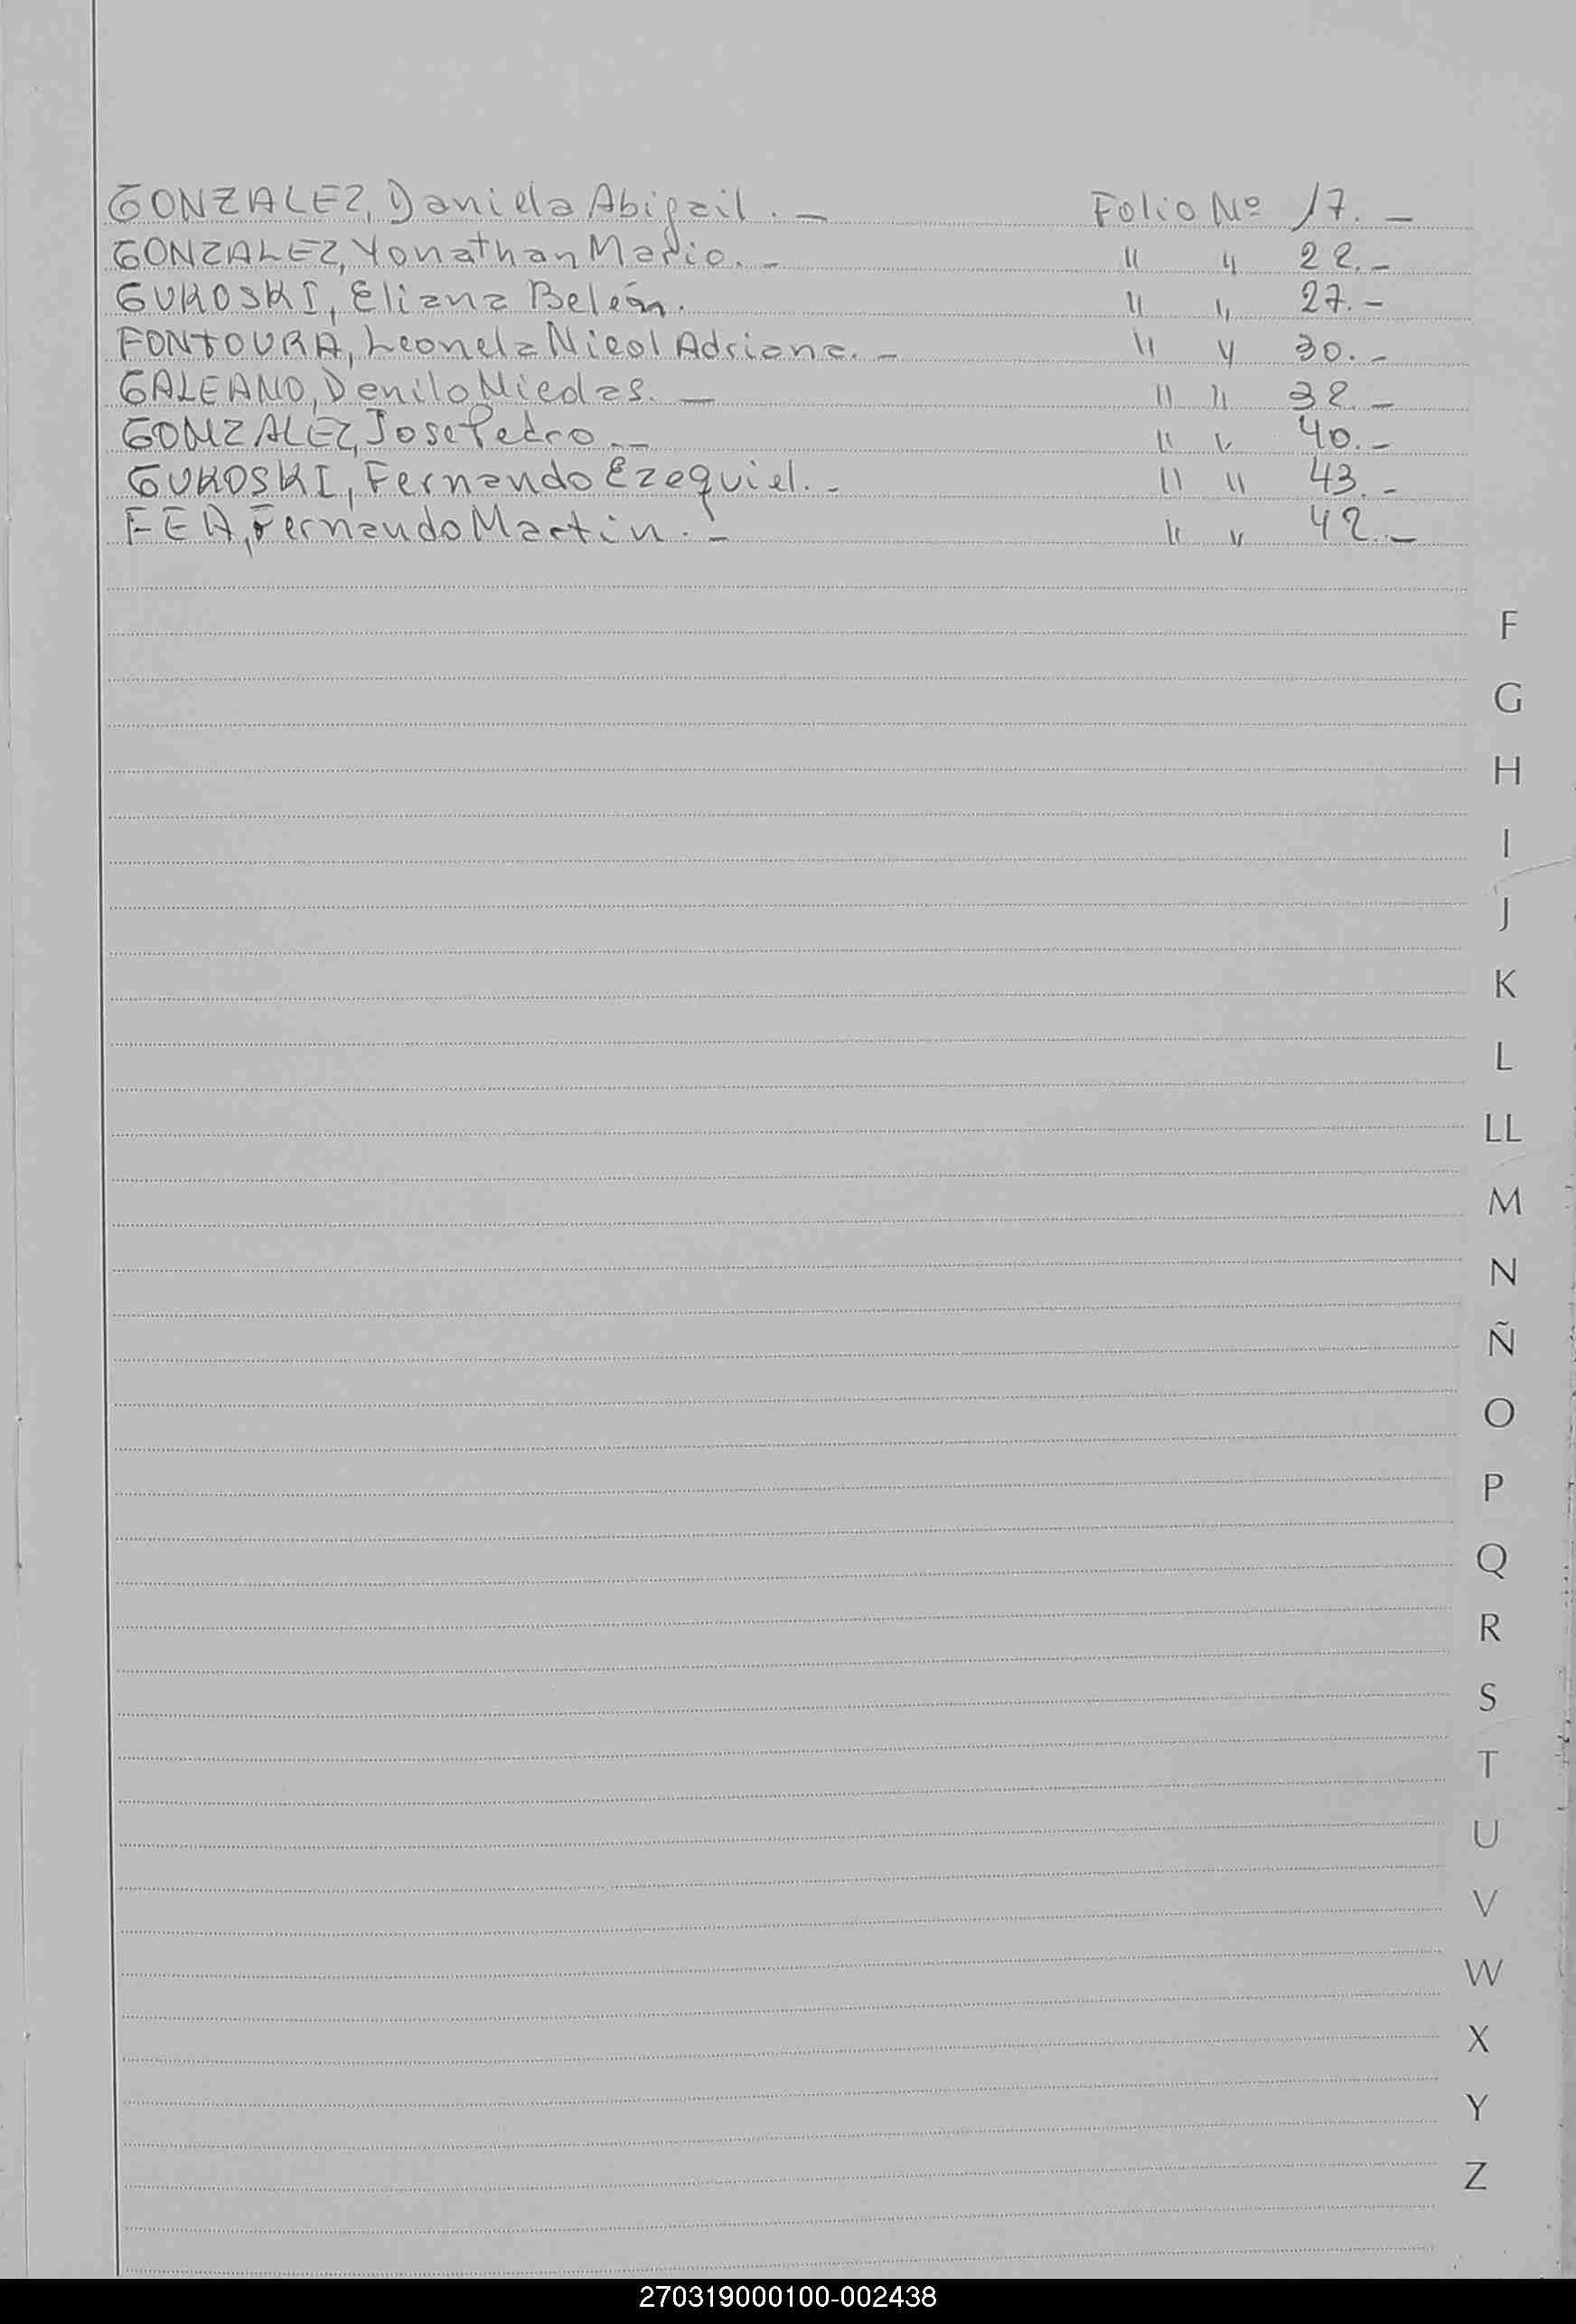 GONZALEZ, Daniela Abigail. — Folio Nº 17. —
GONZALEZ, Yonathan Mario. - " " 22. -
GUKOSKI, Eliana Belén. " " 27. -
FONTOURA, Leonela Nicol Adriana. - " " 30. -
GALEANO, Danilo Nicolas. — " " 32. —
GONZALEZ, Jose Pedro. — " " 40. -
GUKOSKI, Fernando Ezequiel. - " " 43. -
FEA, Fernando Martin. - " " 42. —
F
G
H
I
J
K
L
LL
M
N
Ñ
O
P
Q
R
S
T
U
V
W
X
Y
Z
270319000100-002438